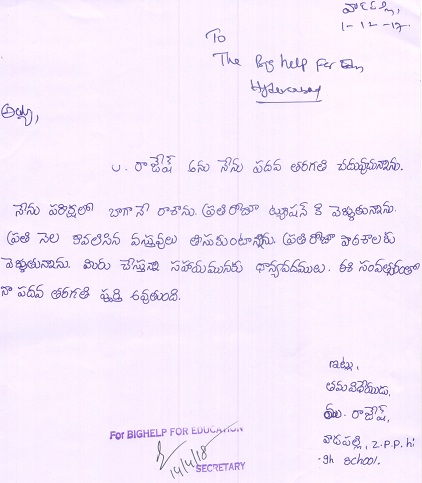 వాడపల్లి,
1-12-17
To
The Big help For
Hyderabad
అయ్యా,
U. రాజేష్ అను నేను పదవ తరగతి చదువుచున్నాను.
నేను పరిక్షలో బాగానే రాశాను. ప్రతిరోజు ట్యూషన్ కి వెళ్ళుతున్నాను.
ప్రతి నెల కావలిసిన వస్తువులు తీసుకుంటాన్నాను. ప్రతి రోజూ పాఠశాలకు
వెళ్ళుతున్నాను. మీరు చేస్తున్న సహాయమునకు ధాన్యవేదములు. ఈ సంవత్సరంతో
నా పదవ తరగతి పూర్తి అవుతుంది.
ఇట్లు,
తమ విధేయుడు,
రాజేష్,
వాడపల్లి, Z.P.P. hi
-gh School.
For BIGHELP FOR EDUCATION
14/4/18
SECRETARY